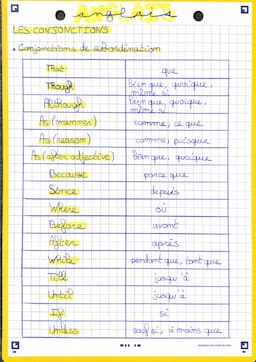 anglais
LES CONJONCTIONS
• Conjonctions de subordination
That que
Though Bien que, quoique, même si
Although bien que, quoique, même si
As (manner) comme, ce que
As (reason) comme, puisque
As (after adjective) Bien que, quoique
Because parce que
Since depuis
Where où
Before avant
After après
While pendant que, tant que
Till jusqu'à
Until jusqu'à
If si
Unless sauf si, à moins que